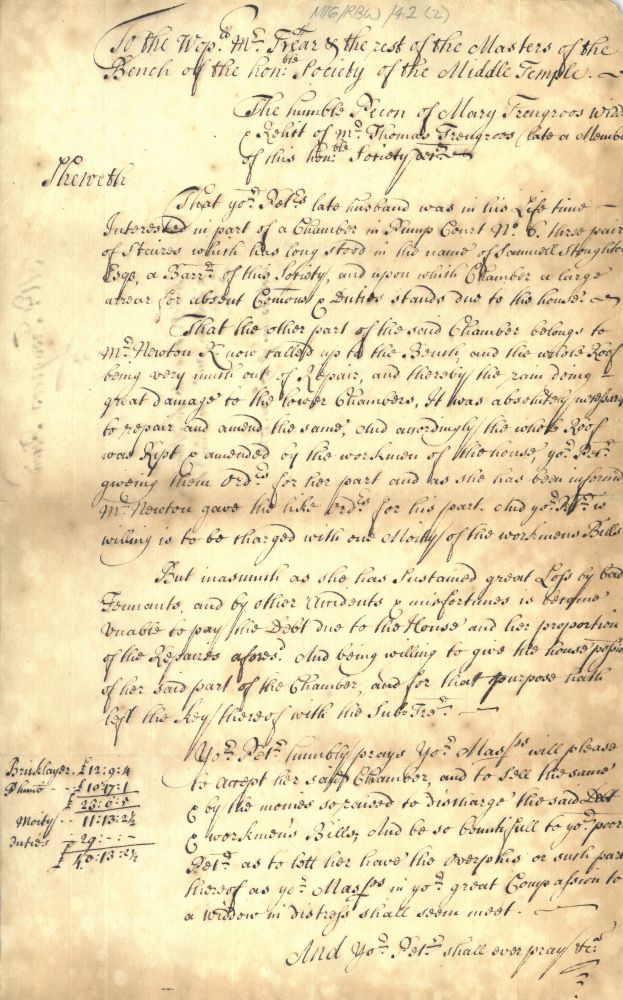 MT6/RBW/42 (2)
To the Wop.ll Mr. Trẽar & the rest of the Masters of the
Bench of the hon:ble Society of the Middle Temple. —
The humble Peticon of Mary Trengroos Widd
& Relict of Mr. Thomas Trengroos (late a Membe
of this hon:ble Society
Sheweth
That yor. Petrs late husband was in his Life time
Interested in part of a Chamber in Pump Court No. 6. three pair
of Steires which has long stood in the name of Samuell Stoughton
Esqr, a Barrr. of this Society, and upon which Chamber a large
arrear for absent Comons & Duties stands due to the house. —
That the other part of the said Chamber belongs to
Mr. Newton now called up to the Bench, and the whole Roof
being very much out of Repair, and thereby the rain doing
great damage to the lower Chambers, It was absolutely necessary
to repair and amend the same, And accordingly the whole Roof
was Ript & amended by the workmen of the house, yor. Petr.
giveing them Ordrs for her part and as she has been informd
Mr. Newton gave the like Ordrs for his part. And yor. Petr. is
willing is to be charged with one Moity of the workmens Bills
But inasmuch as she has Sustained great Loss by bad
Tennants, and by other Accidents & misfortunes is become
Unable to pay the Debt due to the House and her proportion
of the Repaires aforesd. And being willing to give the house possio
of her said part of the Chamber, and for that purpose hath
left the Key thereof with the Sub-Trẽr. —
Yor. Petr. humbly prays Yor. Masps will please
to accept her said Chamber, and to sell the same
& by the monies so raised to discharge the said Debt
& workmens Bills, And be so bountifull to yor. poor
Petr. as to lett her have the overplus or such part
thereof as yor. Masps in yor. great Compassion to
a widdow in distress shall seem meet. —
And Yor. Petr. shall ever pray &c.
Bricklayer. £12:9:4
Plumr - - £10:17:1
£23:6:5
Moity - - 11:13:2½
Duties - 29:-:-
£40:13:2½